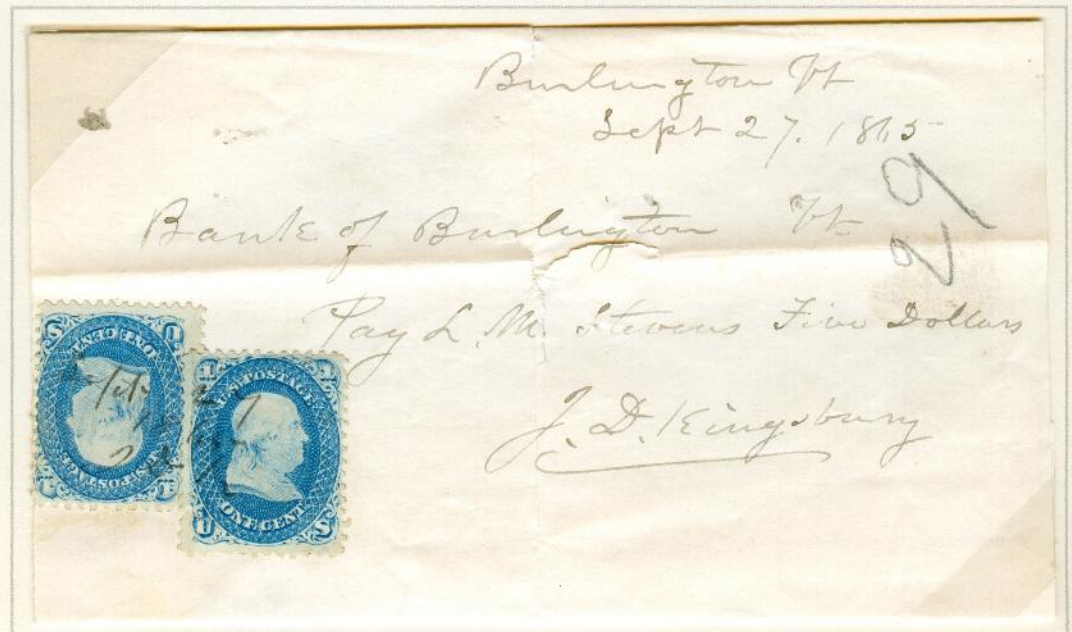 Burlington Vt
Sept 27. 1865
29
Bank of Burlington Vt
Pay L. M. Stevens Five Dollars
J. D. Kingsbury
U.S. POSTAGE
ONE CENT
U 1 1 S
U.S. POSTAGE
ONE CENT
U S